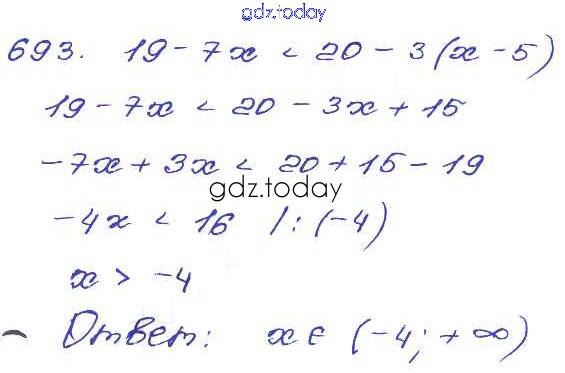 gdz.today
693. 19 - 7x < 20 - 3(x - 5)
19 - 7x < 20 - 3x + 15
-7x + 3x < 20 + 15 - 19
gdz.today
-4x < 16 /: (-4)
x > -4
Ответ: x ∈ (-4; +∞)